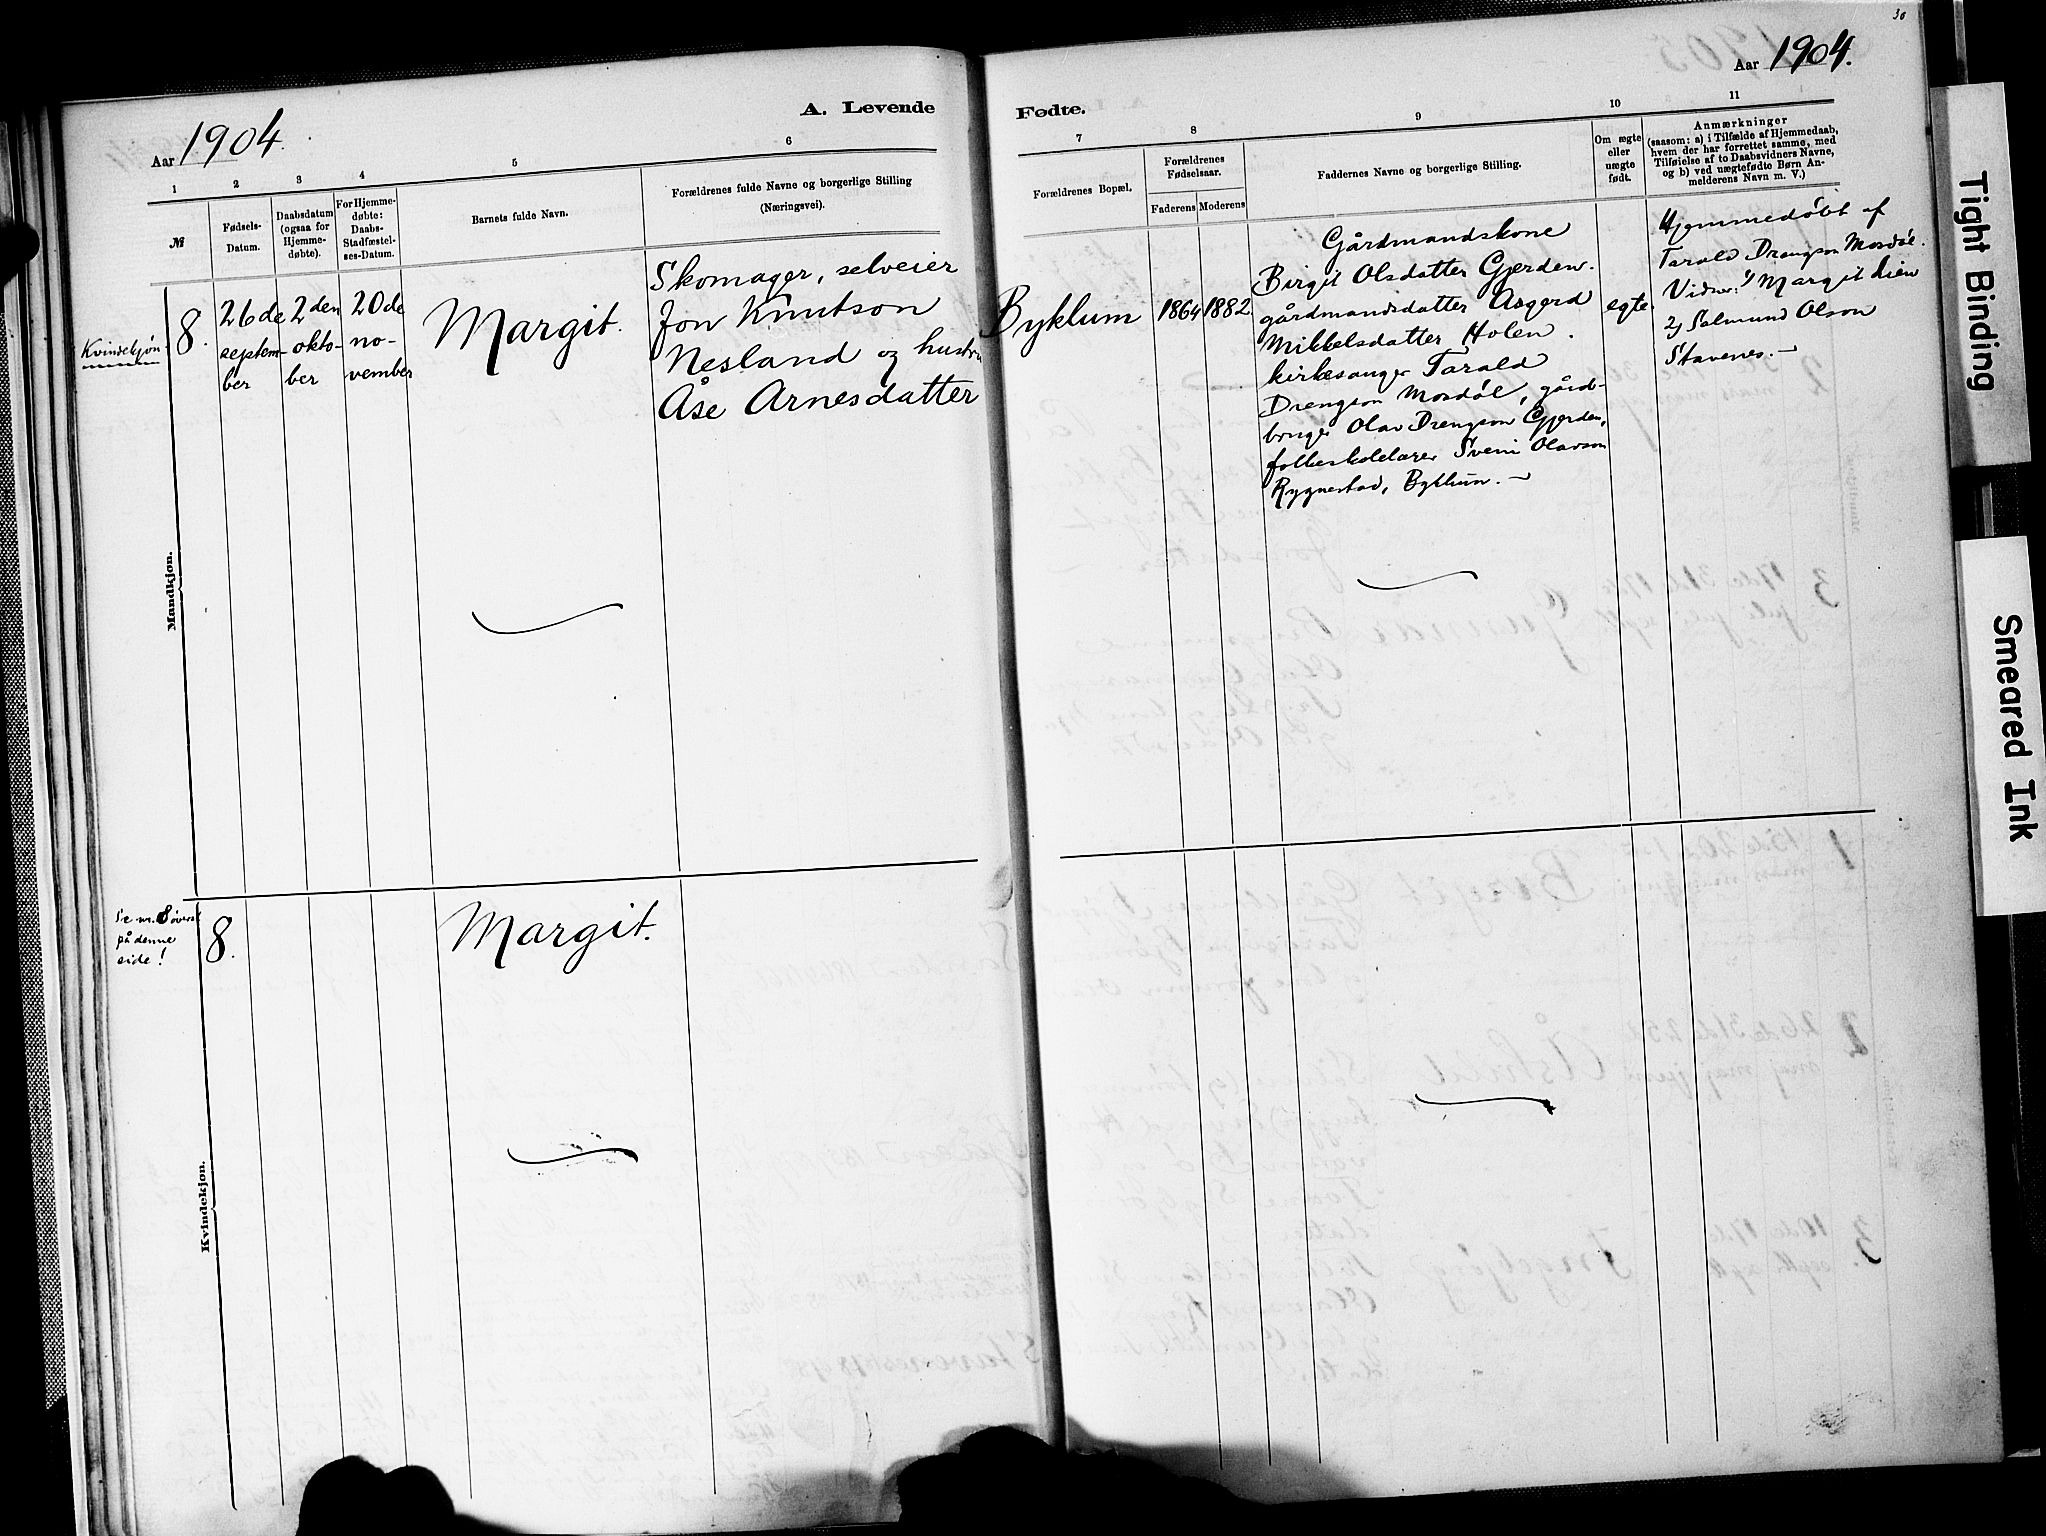 30
Aar 1904.
A. Levende
Fødte.
Aar 1904.
1
2
3
4
5
6
7
8
9
10
11
№
Fødsels-
Datum.
Daabsdatum
(ogsaa for
Hjemme-
døbte).
For Hjemme-
døbte:
Daabs-
Stadfæstel-
ses-Datum.
Barnets fulde Navn.
Forældrenes fulde Navne og borgerlige Stilling
(Næringsvei).
Forældrenes Bopæl.
Forældrenes
Fødselsaar.
Faderens
Moderens
Faddernes Navne og borgerlige Stilling.
Om ægte
eller
uægte
født.
Anmærkninger
(saasom: a) i Tilfælde af Hjemmedaab,
hvem der har forrettet samme, med
Tilføielse af to Daabsvidners Navne,
og b) ved uægtefødte Børn An-
melderens Navn m. V.)
Kvindekjøn
8.
26de
septem-
ber
2den
okto-
ber
20de
no-
vember
Margit.
Skomager, selveier
Jon Knutson
Nesland og hustru
Åse Arnesdatter
Byklum
1864
1882
Gårdmandskone
Birgit Olsdatter Gjerden.
gårdmandsdatter Asgerd
Mikkelsdatter Holen.
kirkesanger Tarald
Drengson Mosdøl, gård-
bruger Olav Drengson Gjerden,
folkeskolelærer Svein Olavson
Rygnestad, Byklum. —
egte
Hjemmedøbt af
Tarald Drengson Mosdøl.
Vidner: 1) Margit Lien
2) Salmund Olson
Stavenes. —
Mandkjøn.
Se nr. 8 øverst
på denne
side!
8.
Margit.
Kvindekjøn.
Tight Binding
Smeared Ink